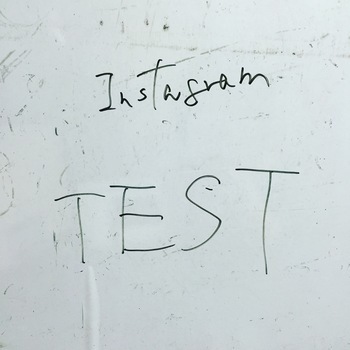 Instagram
TEST